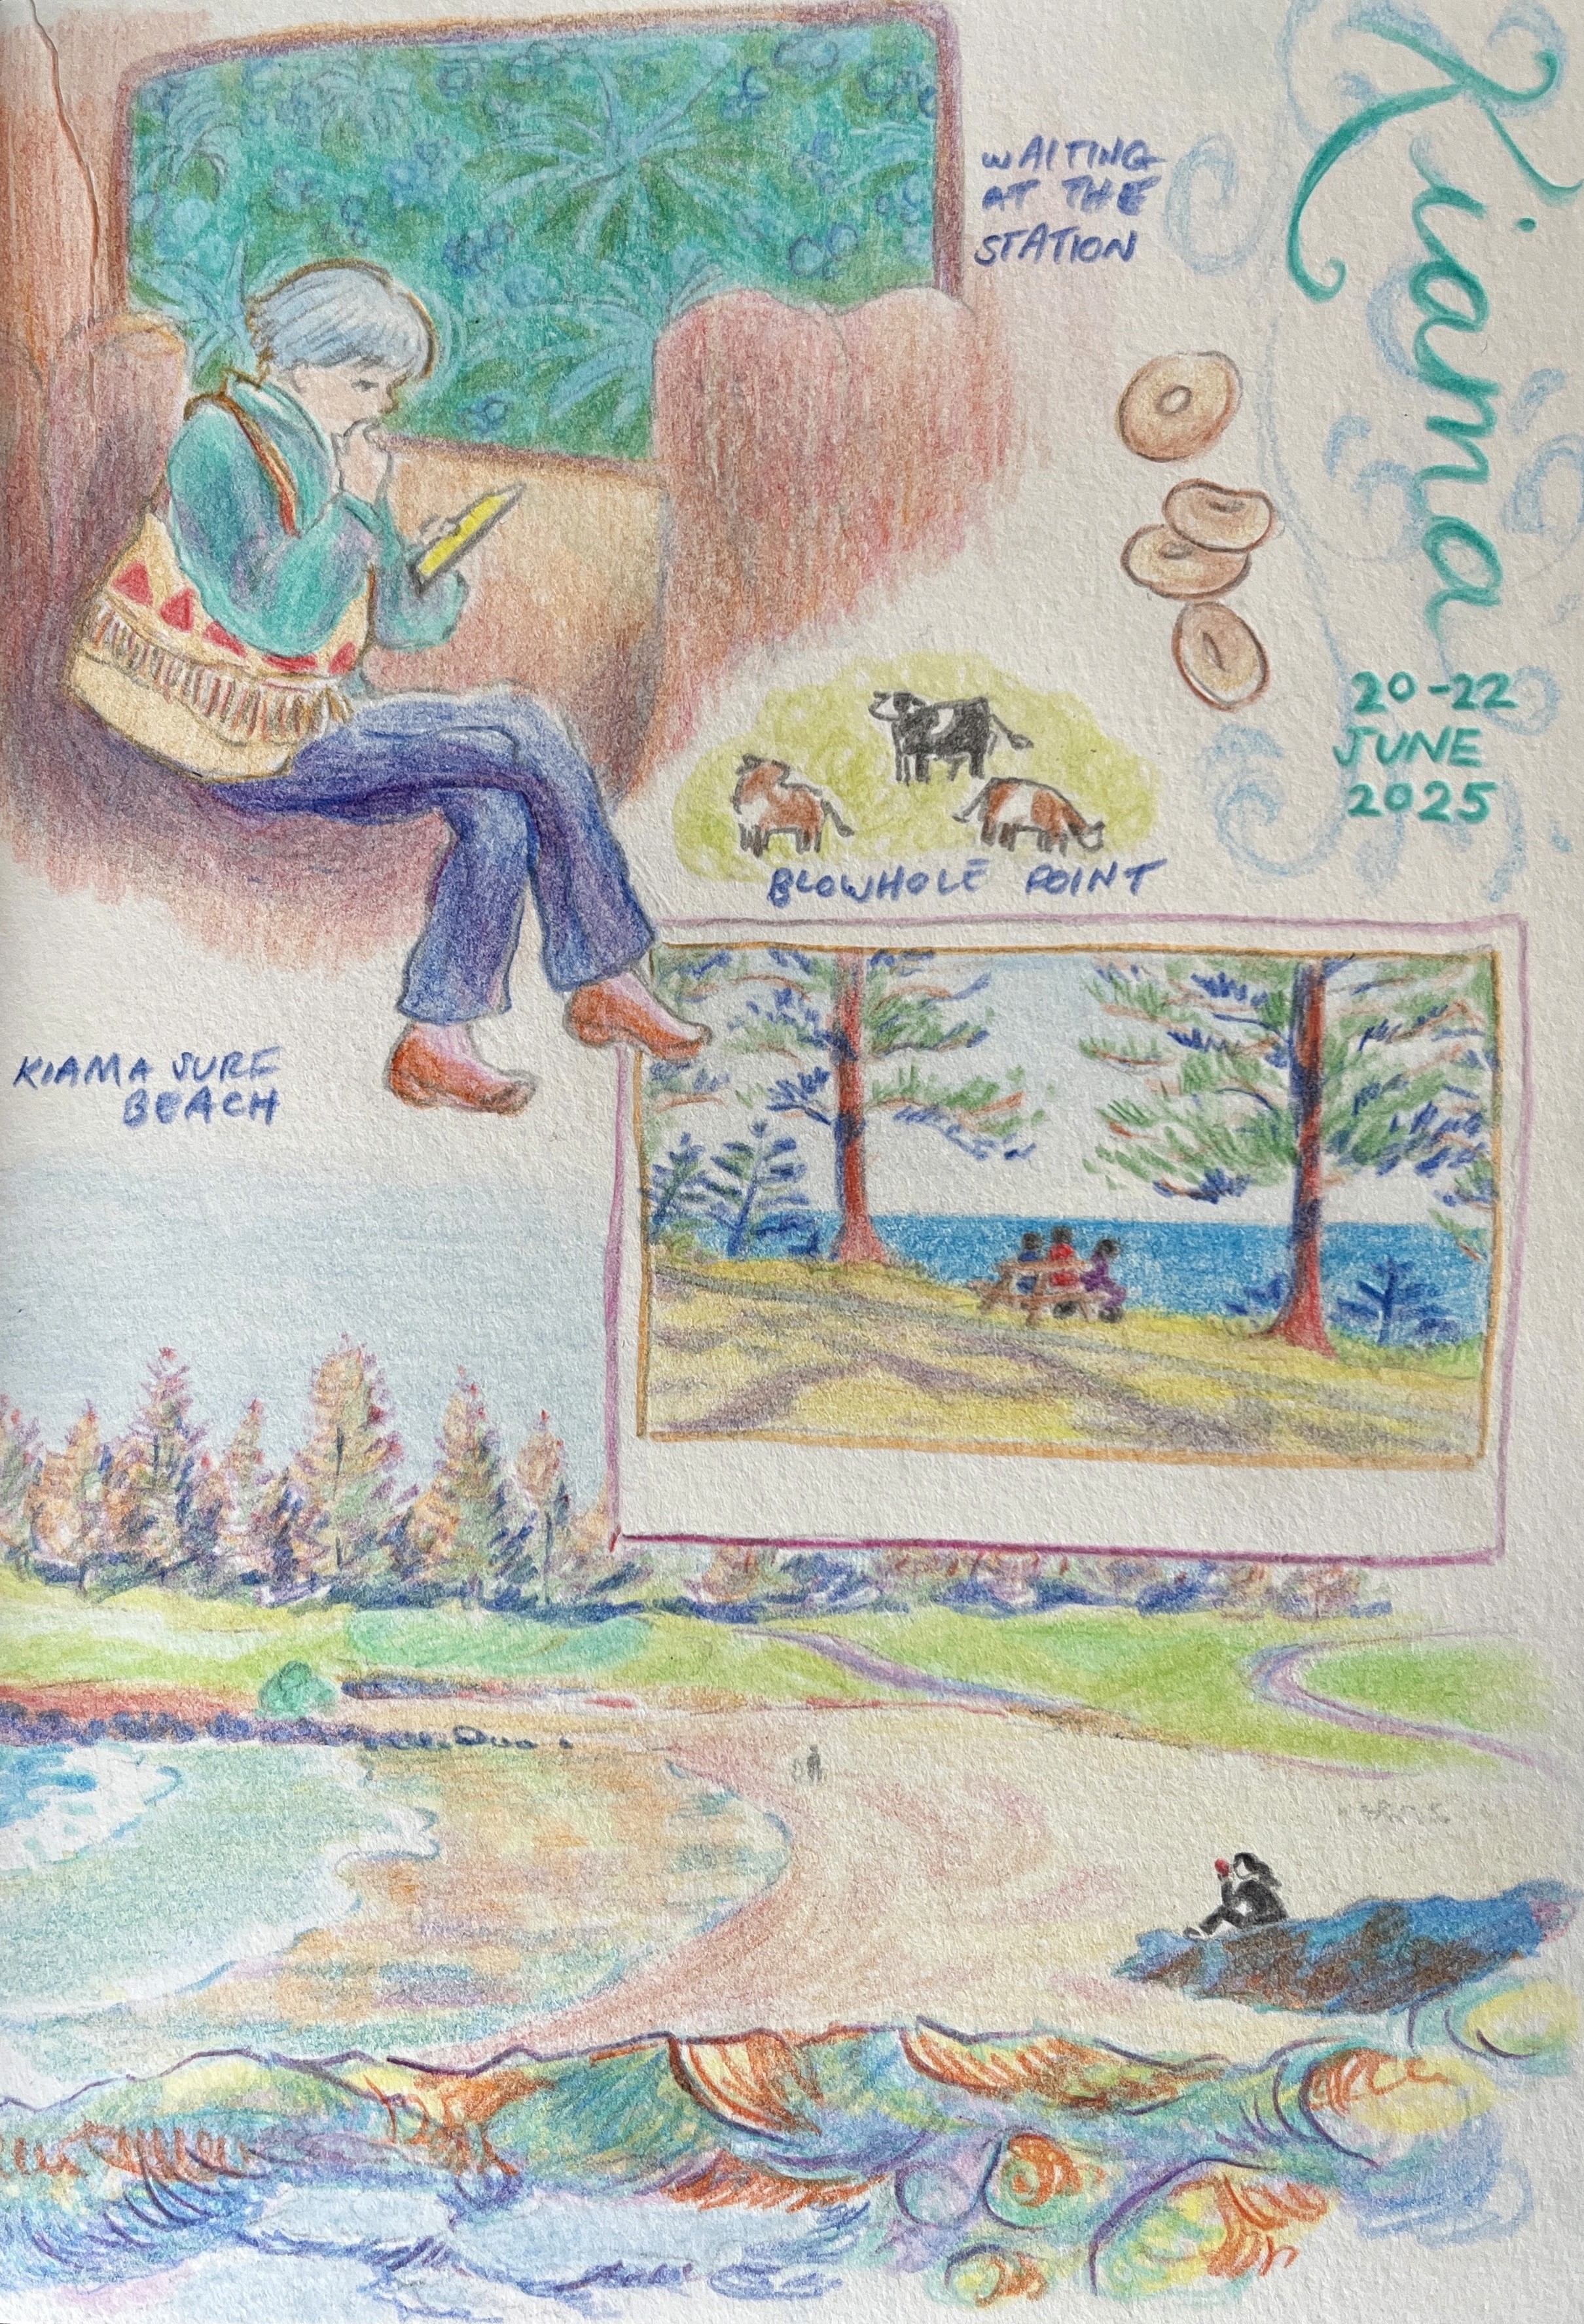 Kiama
20-22
JUNE
2025
WAITING
AT THE
STATION
BLOWHOLE POINT
KIAMA SURF
BEACH